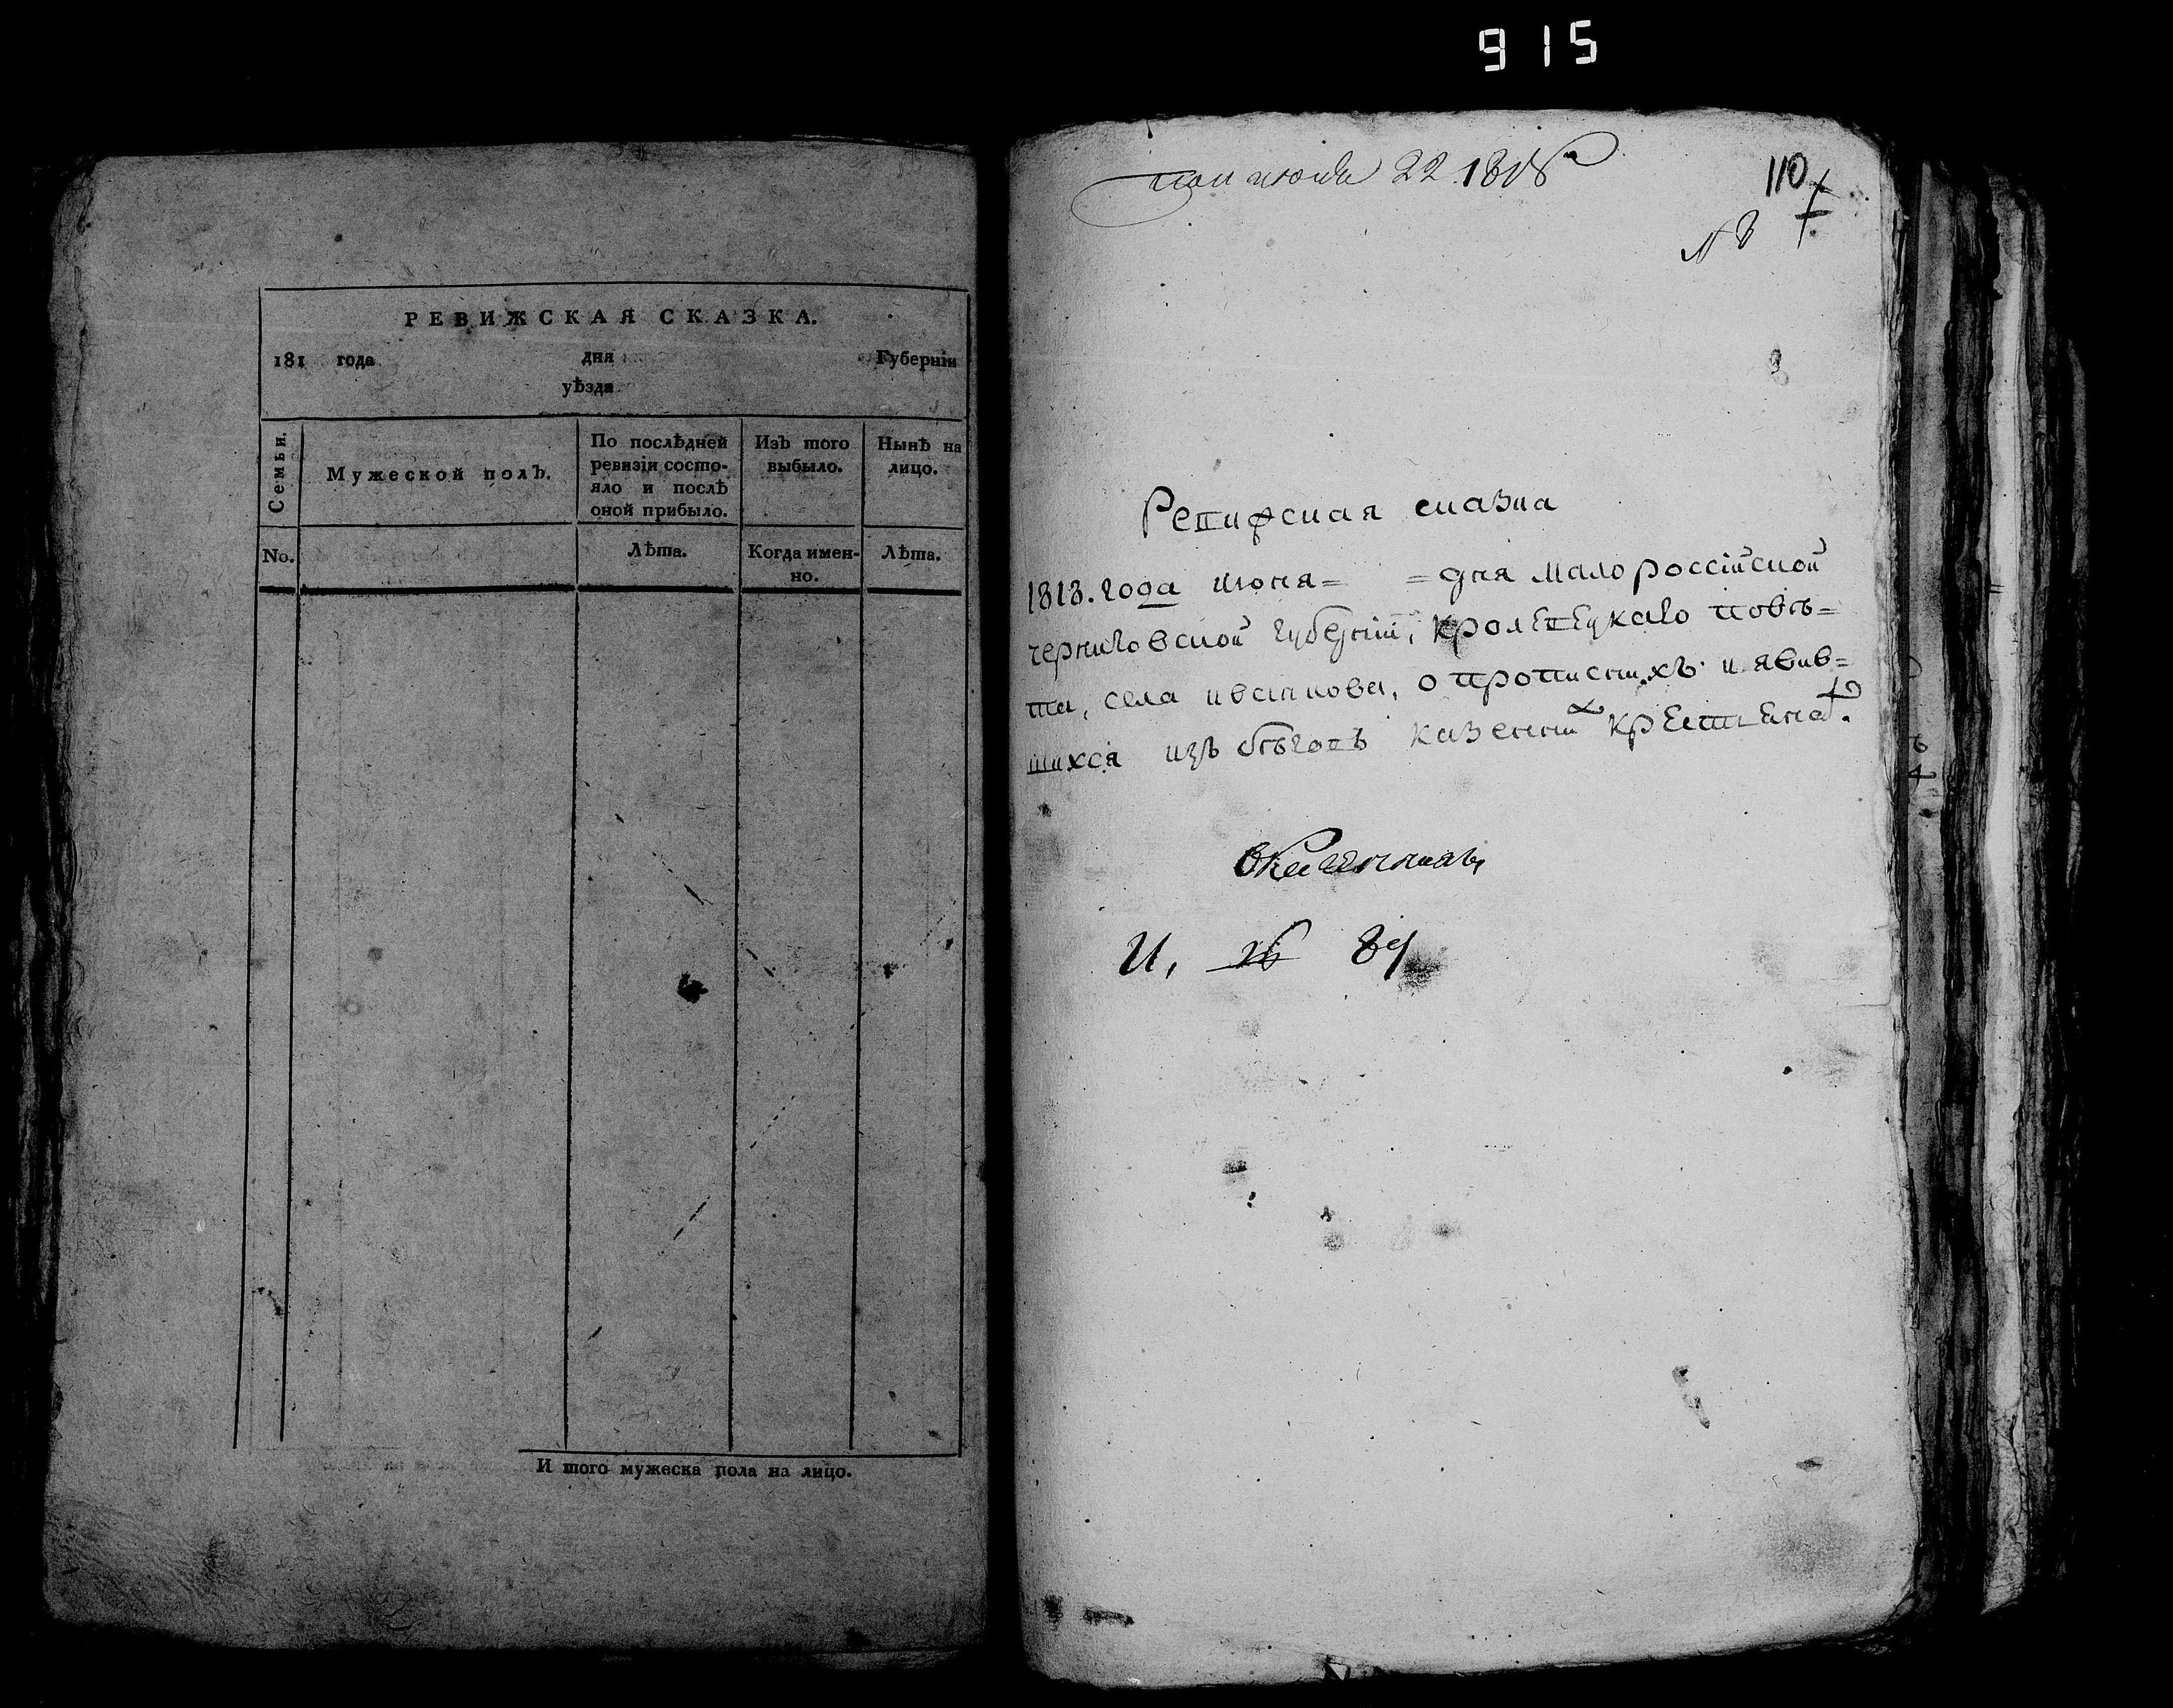 915
РЕВИЖСКАЯ СКАЗКА.
181 года дня Губерніи
уѣзда
Семьи.
Мужеской полъ.
По послѣдней ревизіи состо-
яло и послѣ оной прибыло.
Изъ того выбыло.
Нынѣ на лицо.
No.
Лѣта.
Когда имен-
но.
Лѣта.
И того мужеска пола на лицо.
июня 22 1818
110
№ 7
Ревижская сказка
1818. года июня= =дня Малороссійской
черниговской губерніи, кролевецкаго повѣ=
та, села иваткова, о прописныхъ и явив=
шихся изъ бѣговъ казенных крестьянах.
И, 84